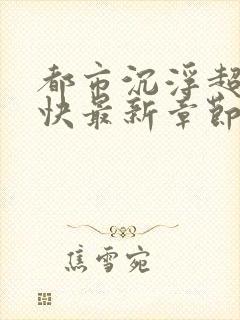 都市沉浮超
快最新章節
焦雪宛